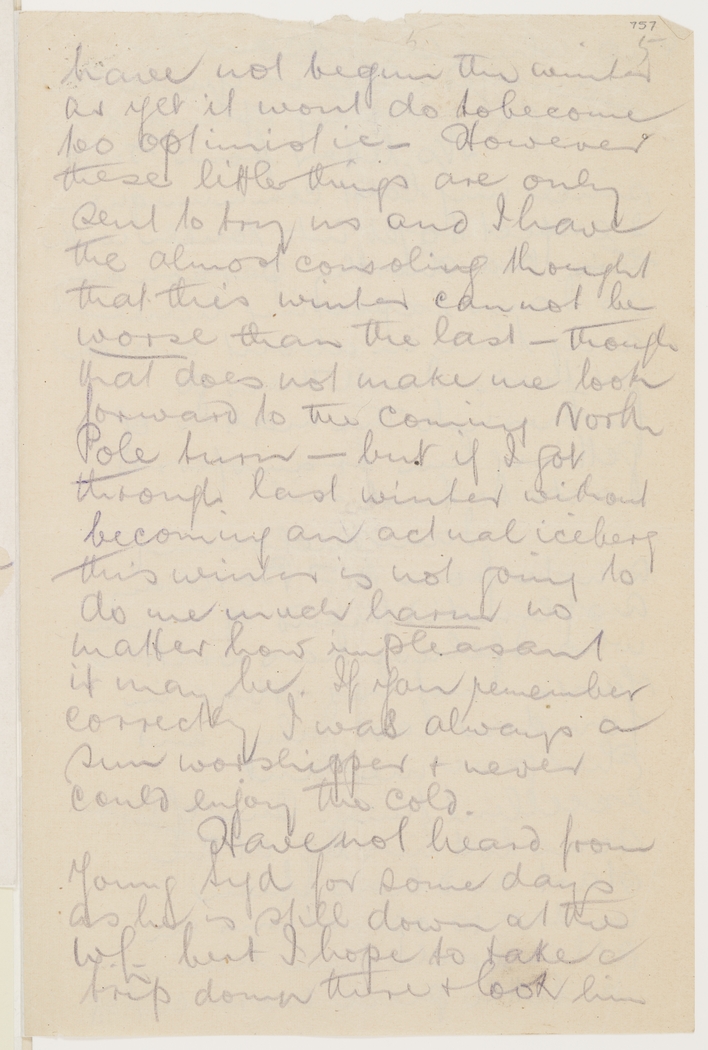 757
5
have not begun the winter
as yet it wont do to become
too optimistic – However
these little things are only
sent to try us and I have
the almost consoling thought
that this winter cannot be
worse than the last – though
that does not make me look
forward to the coming North
Pole turn – but if I got
through last winter without
becoming an actual iceberg
this winter is not going to
do me much harm no
matter how unpleasant
it may be. If you remember
correctly I was always a
sun worshipper & never
could enjoy the cold.
Have not heard from
Young Syd for some days
as he is still down at the
but I hope to take a
trip down there & look him